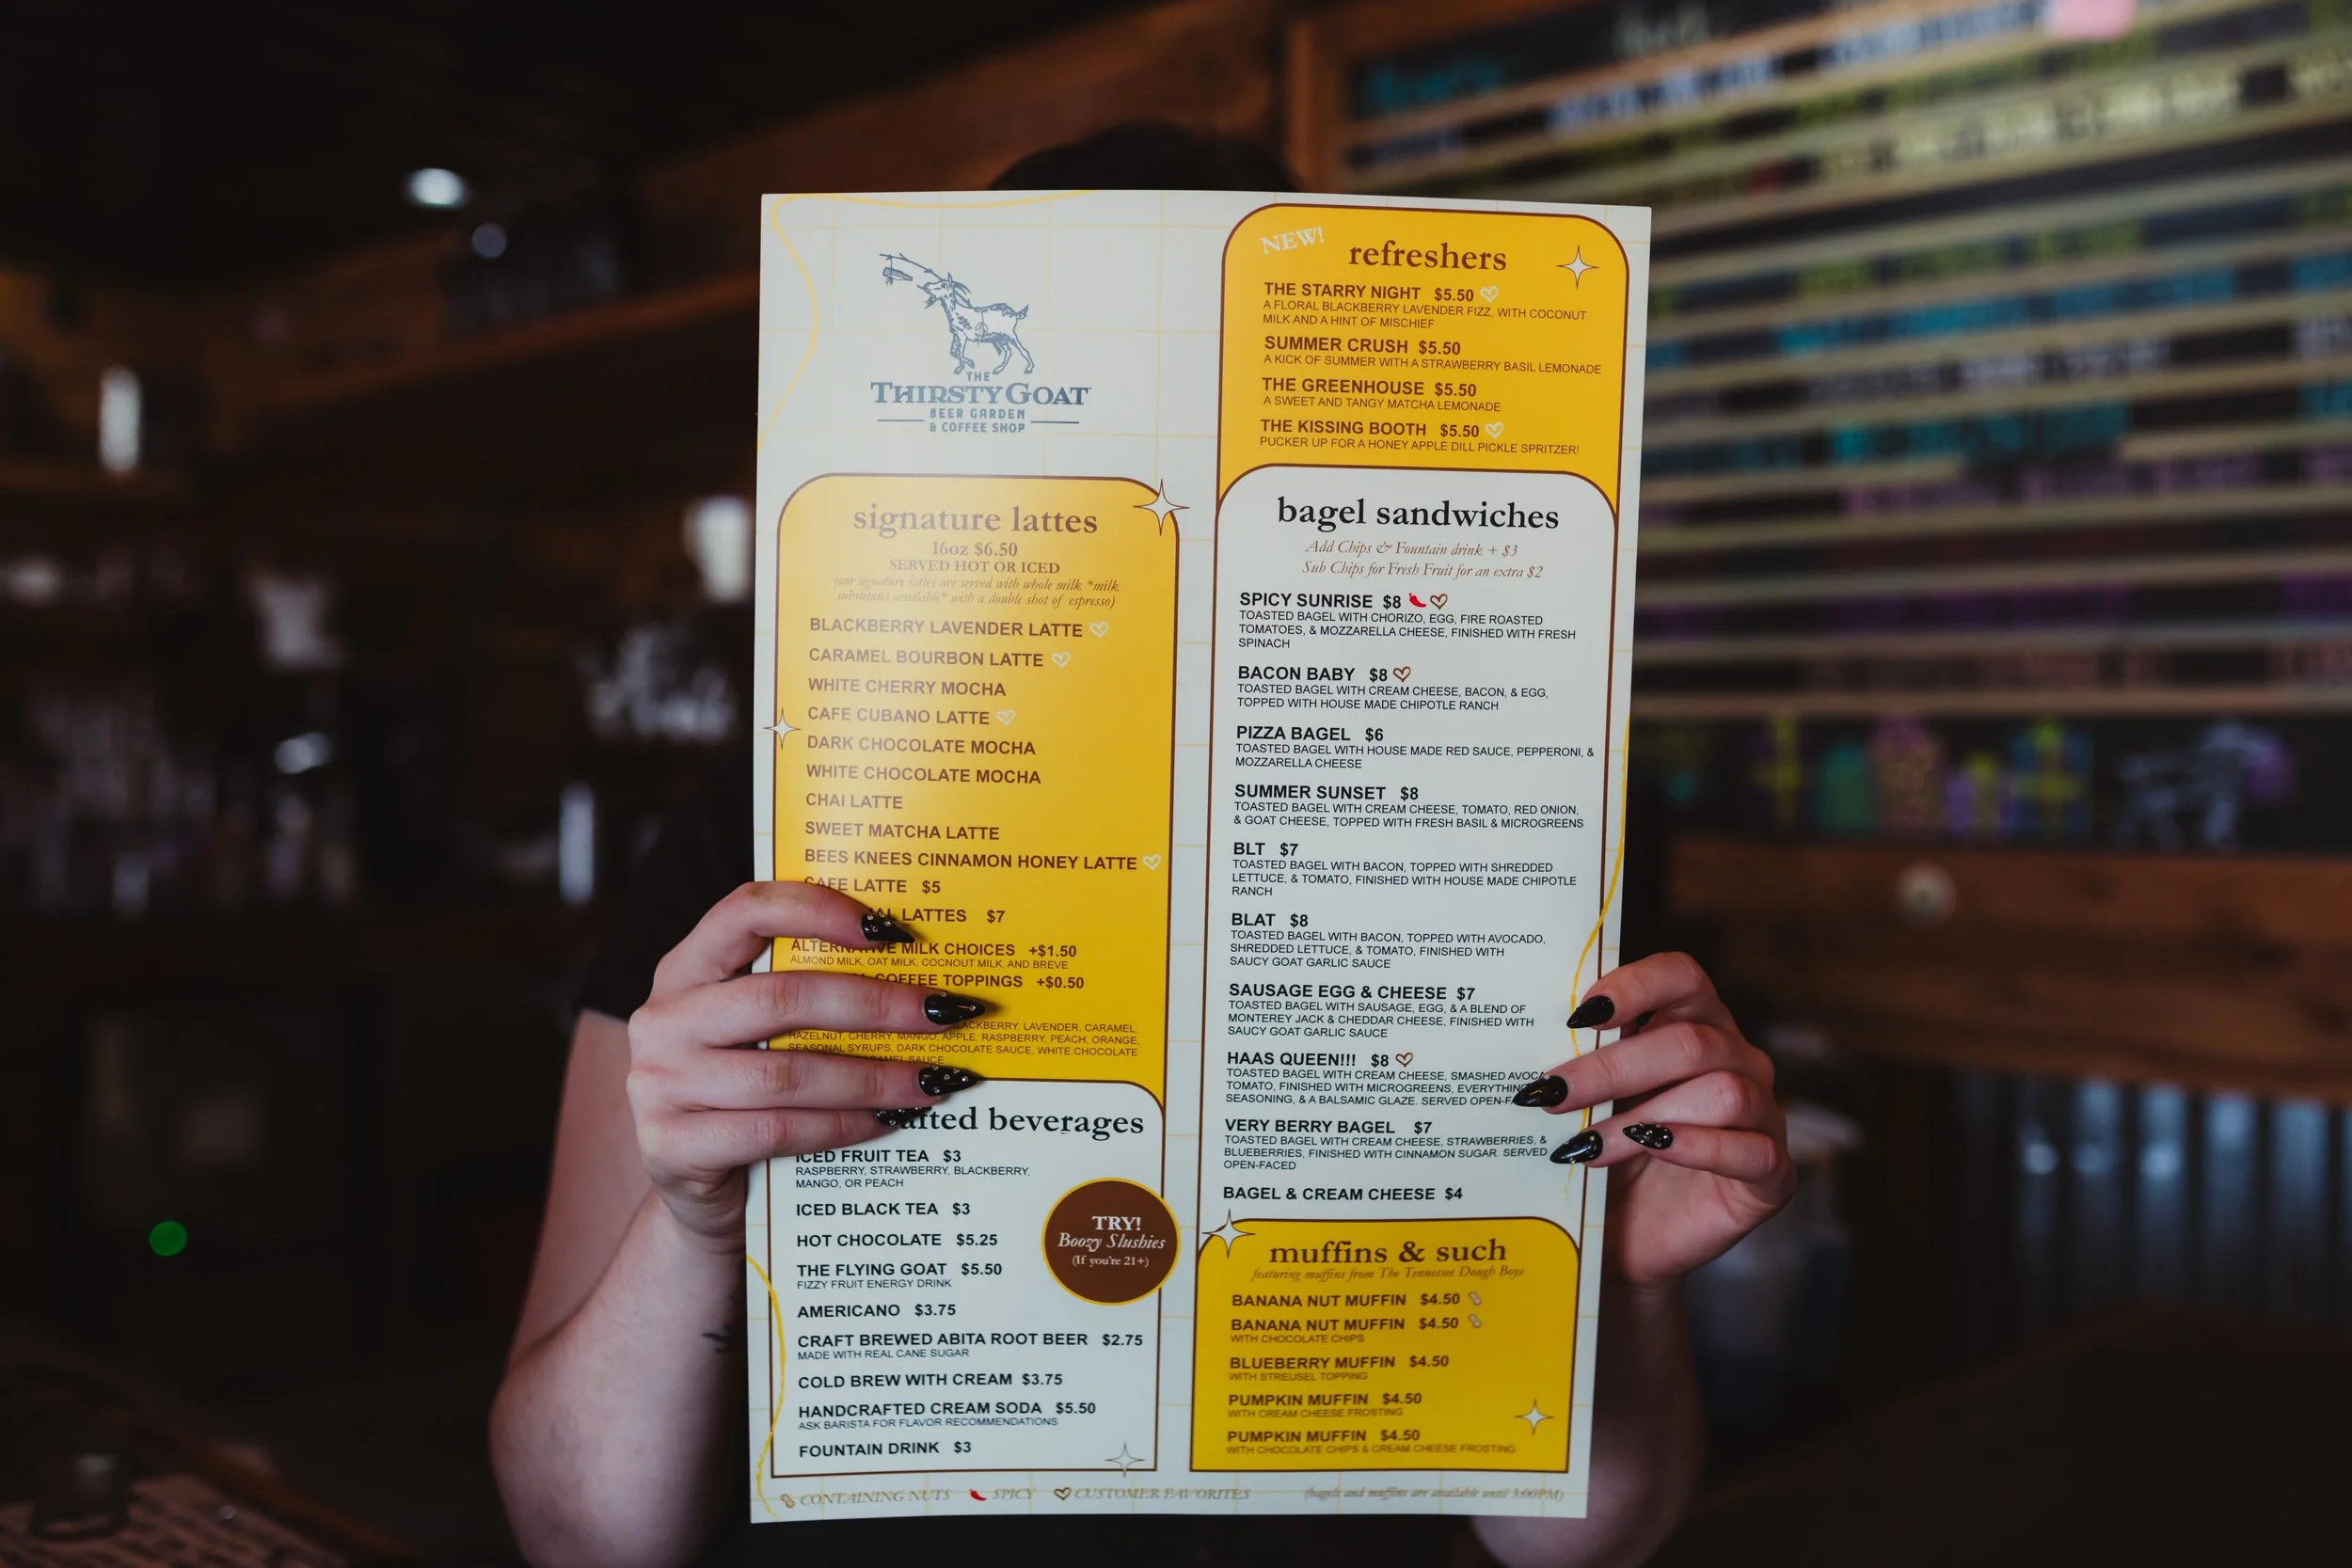 THE
THIRSTY GOAT
BEER GARDEN
& COFFEE SHOP
signature lattes
16oz $6.50
SERVED HOT OR ICED
(our signature lattes are served with whole milk *milk
substitutes available* with a double shot of espresso)
BLACKBERRY LAVENDER LATTE
CARAMEL BOURBON LATTE
WHITE CHERRY MOCHA
CAFE CUBANO LATTE
DARK CHOCOLATE MOCHA
WHITE CHOCOLATE MOCHA
CHAI LATTE
SWEET MATCHA LATTE
BEES KNEES CINNAMON HONEY LATTE
CAFE LATTE $5
LATTES $7
ALTERNATIVE MILK CHOICES +$1.50
ALMOND MILK, OAT MILK, COCNOUT MILK, AND BREVE
COFFEE TOPPINGS +$0.50
BLACKBERRY, LAVENDER, CARAMEL,
HAZELNUT, CHERRY, MANGO, APPLE, RASPBERRY, PEACH, ORANGE,
SEASONAL SYRUPS, DARK CHOCOLATE SAUCE, WHITE CHOCOLATE
CARAMEL SAUCE
beverages
ICED FRUIT TEA $3
RASPBERRY, STRAWBERRY, BLACKBERRY,
MANGO, OR PEACH
ICED BLACK TEA $3
HOT CHOCOLATE $5.25
THE FLYING GOAT $5.50
FIZZY FRUIT ENERGY DRINK
AMERICANO $3.75
CRAFT BREWED ABITA ROOT BEER $2.75
MADE WITH REAL CANE SUGAR
COLD BREW WITH CREAM $3.75
HANDCRAFTED CREAM SODA $5.50
ASK BARISTA FOR FLAVOR RECOMMENDATIONS
FOUNTAIN DRINK $3
TRY!
Boozy Slushies
(If you're 21+)
NEW!
refreshers
THE STARRY NIGHT $5.50
A FLORAL BLACKBERRY LAVENDER FIZZ, WITH COCONUT
MILK AND A HINT OF MISCHIEF
SUMMER CRUSH $5.50
A KICK OF SUMMER WITH A STRAWBERRY BASIL LEMONADE
THE GREENHOUSE $5.50
A SWEET AND TANGY MATCHA LEMONADE
THE KISSING BOOTH $5.50
PUCKER UP FOR A HONEY APPLE DILL PICKLE SPRITZER!
bagel sandwiches
Add Chips & Fountain drink + $3
Sub Chips for Fresh Fruit for an extra $2
SPICY SUNRISE $8
TOASTED BAGEL WITH CHORIZO, EGG, FIRE ROASTED
TOMATOES, & MOZZARELLA CHEESE, FINISHED WITH FRESH
SPINACH
BACON BABY $8
TOASTED BAGEL WITH CREAM CHEESE, BACON, & EGG,
TOPPED WITH HOUSE MADE CHIPOTLE RANCH
PIZZA BAGEL $6
TOASTED BAGEL WITH HOUSE MADE RED SAUCE, PEPPERONI, &
MOZZARELLA CHEESE
SUMMER SUNSET $8
TOASTED BAGEL WITH CREAM CHEESE, TOMATO, RED ONION,
& GOAT CHEESE, TOPPED WITH FRESH BASIL & MICROGREENS
BLT $7
TOASTED BAGEL WITH BACON, TOPPED WITH SHREDDED
LETTUCE, & TOMATO, FINISHED WITH HOUSE MADE CHIPOTLE
RANCH
BLAT $8
TOASTED BAGEL WITH BACON, TOPPED WITH AVOCADO,
SHREDDED LETTUCE, & TOMATO, FINISHED WITH
SAUCY GOAT GARLIC SAUCE
SAUSAGE EGG & CHEESE $7
TOASTED BAGEL WITH SAUSAGE, EGG, & A BLEND OF
MONTEREY JACK & CHEDDAR CHEESE, FINISHED WITH
SAUCY GOAT GARLIC SAUCE
HAAS QUEEN!!! $8
TOASTED BAGEL WITH CREAM CHEESE, SMASHED AVOCA
TOMATO, FINISHED WITH MICROGREENS, EVERYTHING
SEASONING, & A BALSAMIC GLAZE. SERVED OPEN-F
VERY BERRY BAGEL $7
TOASTED BAGEL WITH CREAM CHEESE, STRAWBERRIES, &
BLUEBERRIES, FINISHED WITH CINNAMON SUGAR. SERVED
OPEN-FACED
BAGEL & CREAM CHEESE $4
muffins & such
featuring muffins from The Tennessee Dough Boys
BANANA NUT MUFFIN $4.50
BANANA NUT MUFFIN $4.50
WITH CHOCOLATE CHIPS
BLUEBERRY MUFFIN $4.50
WITH STREUSEL TOPPING
PUMPKIN MUFFIN $4.50
WITH CREAM CHEESE FROSTING
PUMPKIN MUFFIN $4.50
WITH CHOCOLATE CHIPS & CREAM CHEESE FROSTING
CONTAINING NUTS SPICY CUSTOMER FAVORITES (bagels and muffins are available until 3:00PM)